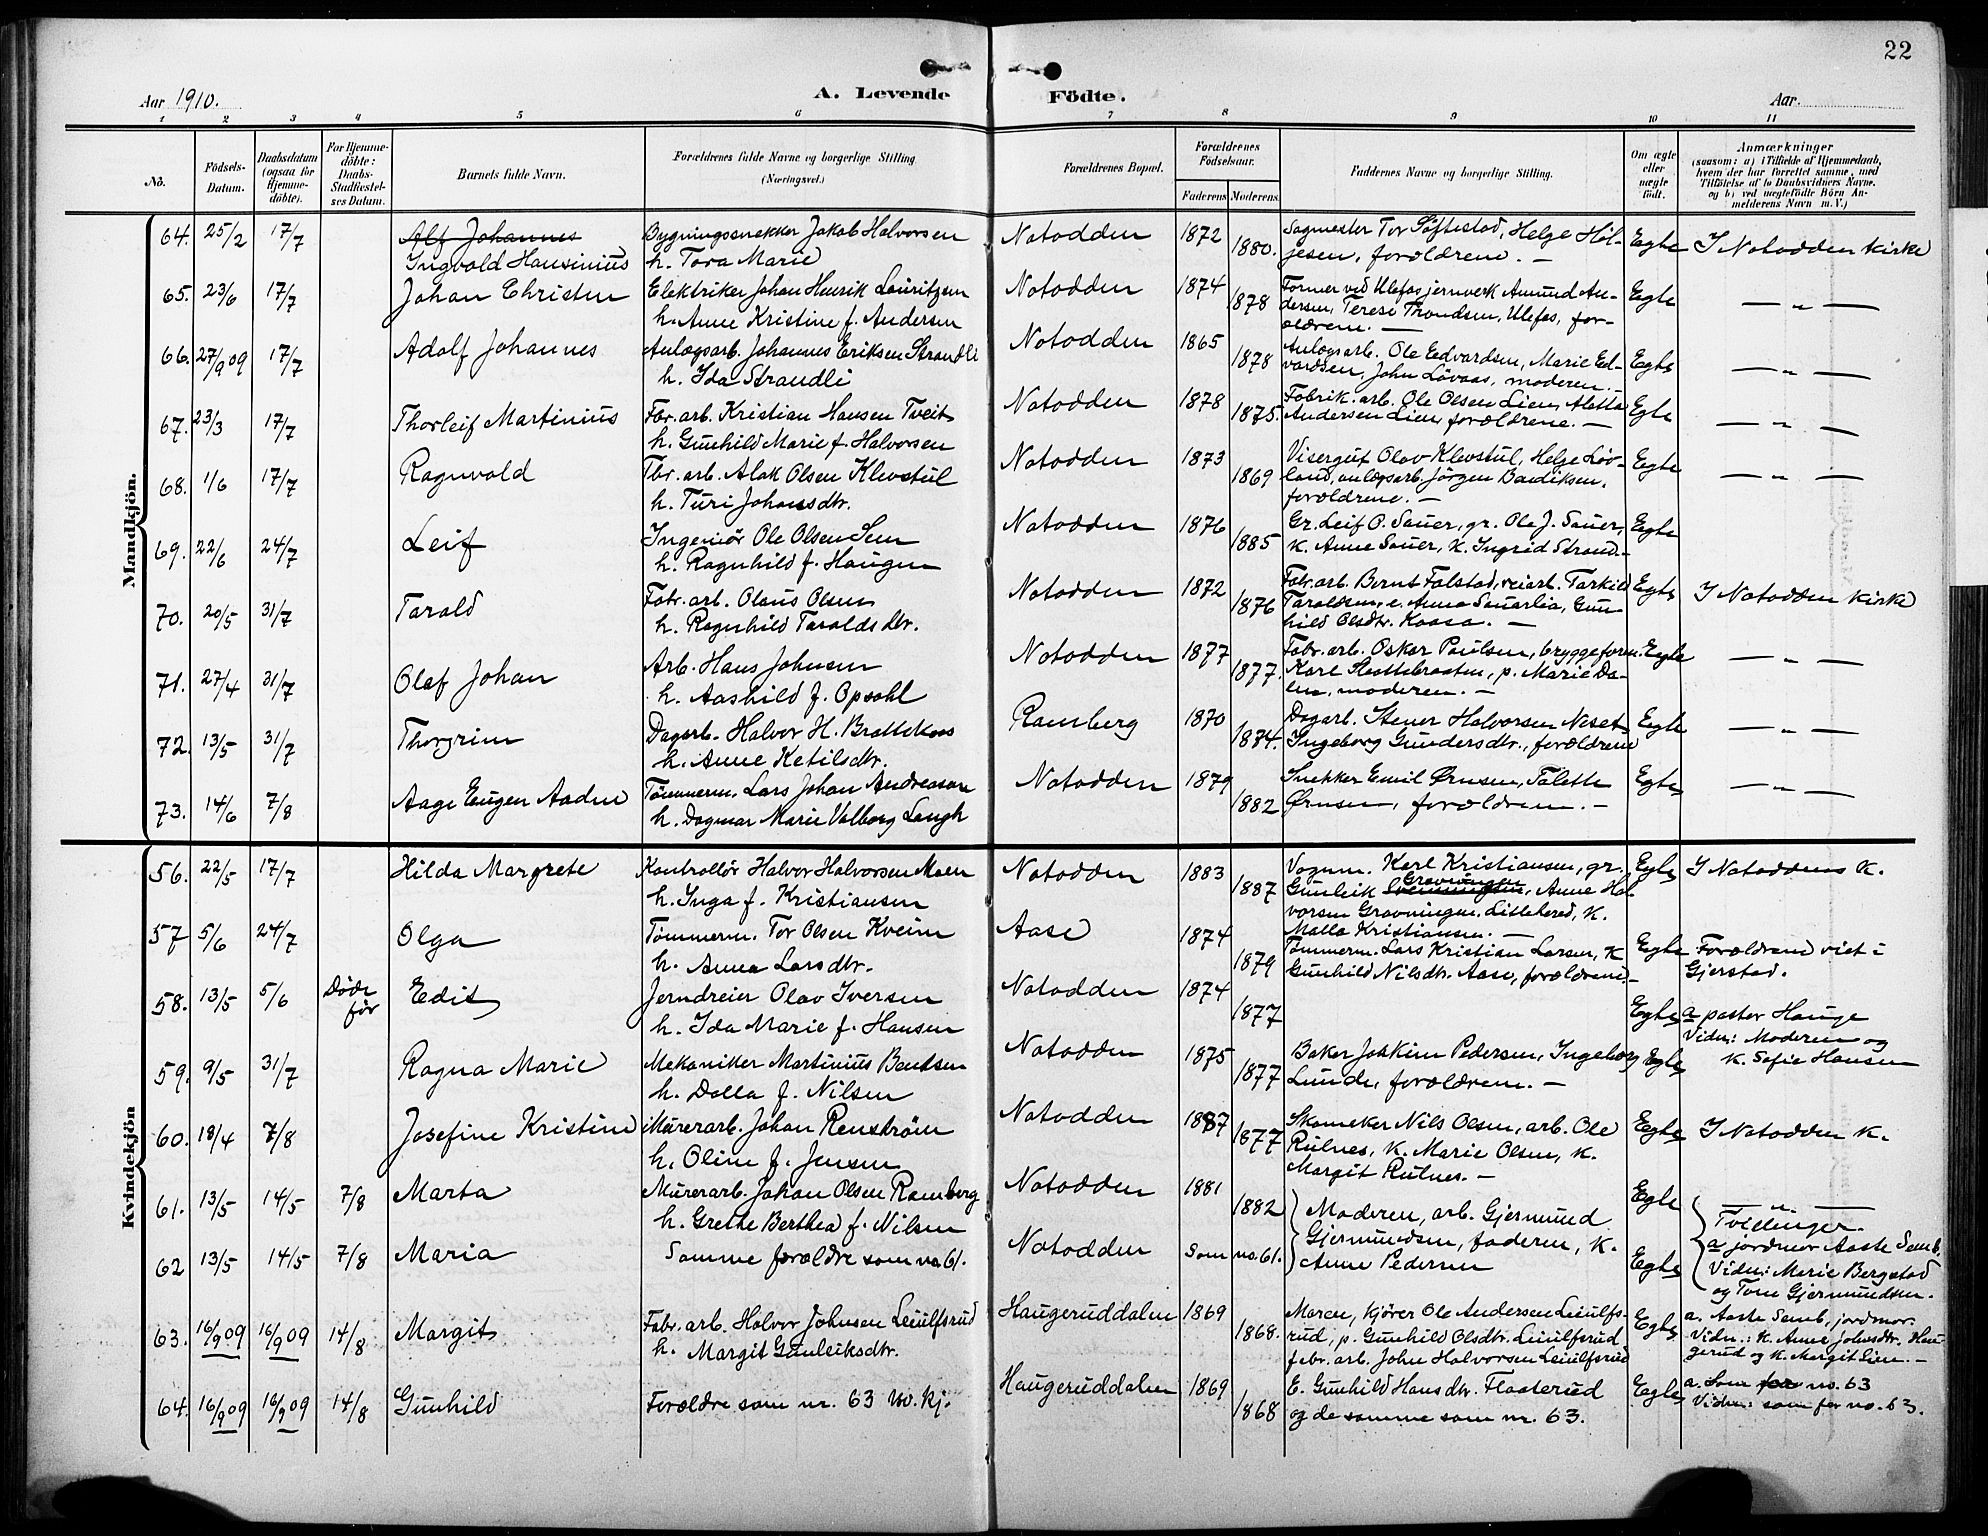 22
Aar 1910.
A. Levende Födte.
Aar.
1 2 3 4 5 6 7 8 9 10 11
No.
Födsels-Datum.
Daabsdatum (ogsaa for Hjemmedöbte).
For Hjemmedöbte: Daabs-Stadfæstelses Datum.
Barnets fulde Navn.
Forældrenes fulde Navne og borgerlige Stilling. (Næringsvei.)
Forældrenes Bopæl.
Forældrenes Födselsaar.
Faderens Moderens.
Faddernes Navne og borgerlige Stilling.
Om ægte eller uægte födt.
Anmærkninger
(saasom: a) i Tilfælde af Hjemmedaab,
hvem der har forrettet samme, med
Tilföielse af to Daabsvidners Navne.
og b) ved uægtefödte Börn Anmelderens Navn m. V.)
Mandkjön.
64. 25/2 17/7 Alf Johannes Bygningssnekker Jakob Halvorsen Notodden 1872 Sagmester Tor Söftestad, Helge Höl- Egte I Notodden kirke
Ingvald Hansinius h. Tora Marie 1880. jesen, forældrene. —
65. 23/6 17/7 Johan Christen Elektriker Johan Henrik Lauritzen Notodden 1874 Former ved Ulefos jernverk Amund An- Egte — „ —
h. Anne Kristine f. Andersen 1878 dersen, Terese Thondsen, Ulefos, for-
ældrene. —
66. 27/9 09 17/7 Adolf Johannes Anlægsarb. Johannes Eriksen Strandli Notodden 1865 Anlægsarb. Ole Edvardsen, Marie Ed- Egte — „ —
h. Ida Strandli 1878 vardsen, John Lövaas, moderen. —
67. 23/3 17/7 Thorleif Martinius Fabr. arb. Kristian Hansen Tveit Notodden 1878 Fabrik. arb. Ole Olsen Lien, Aletta Egte — „ —
h. Gunhild Marie f. Halvorsen 1875. Andersen Lien, forældrene. —
68. 1/6 17/7 Ragnvald Fbr. arb. Alak Olsen Klevstul Notodden 1873 Visergut Olav Klevstul, Helge Löv- Egte — „ —
h. Turi Johansdtr. 1869 land, anlægsarb. Jörgen Bendiksen,
forældrene. —
69. 22/6 24/7 Leif Ingeniör Ole Olsen Sem Notodden 1876 Gr. Leif O. Sauer, gr. Ole J. Sauer, Egte
h. Ragnhild f. Haugen 1885 k. Anne Sauer, k. Ingrid Strand. —
70. 20/5 31/7 Tarald Fabr. arb. Olaus Olsen Notodden 1872 Fabr. arb. Bernt Falstad, veiarb. Tarkild Egte I Notodden kirke
h. Ragnhild Taraldsdtr. 1876 Taraldsen, e. Anna Sauarlia, Gun-
hild Olsdtr. Kaasa. —
71. 27/4 31/7 Olaf Johan Arb. Hans Johnsen Notodden 1877 Fabr. arb. Oskar Paulsen, bryggeform. Egte — „ —
h. Aashild f. Opsahl 1877. Karl, p. Marie Da-
len, moderen. —
72. 13/5 31/7 Thorgrim Dagarb. Halvor H. Brattekaas Ramberg 1870 Dagarb. Stener Halvorsen Neset Egte — „ —
h. Anne Ketilsdtr. 1874. Ingeborg Gundersdtr., forældrene
73. 14/6 7/8 Aage Eugen Aaden Tömmerm. Lars Johan Andreasen Notodden 1879 Snekker Emil Ørnsen, Talette Egte — „ —
h. Dagmar Marie Valborg Laugh 1882 Ørnsen, forældrene. —
Kvindekjön
56. 22/5 17/7 Hilda Margrete Kontrollör Halvor Halvorsen Moen Notodden 1883 Vognm. Karl Kristiansen, gr. Egte I Notoddens k.
h. Inga f. Kristiansen 1887 Gunleik Gravningen, Anne Hal-
vorsen Gravningen. Lilleherad, k.
Malla Kristiansen. —
57 5/6 24/7 Olga Tömmerm. Tor Olsen Kveim Aase 1874 Tömmerm. Lars Kristian Larsen, k Egte Forældrene viet i
h. Anna Larsdtr. 1879 Gunhild Nilsdtr. Aase, forældrene. — Gjerstad.
58. 13/5 5/6 Döde før Edit Jerndreier Olav Iversen Notodden 1874 Egte a pastor Hauge
h. Ida Marie f. Hansen 1877 Vidn: Moderen og
k. Sofie Hansen
59. 9/5 31/7 Ragna Marie Mekaniker Martinius Bentsen Notodden 1875 Baker Joakim Pedersen, Ingeborg Egte
h. Dolla f. Nilsen 1877 Lunde, forældrene. —
60. 18/4 7/8 Josefine Kristine Murerarb. Johan Renström Notodden 1887 Skomaker Nils Olsen, arb. Ole Egte I Notodden k.
h. Oline f. Jensen 1877 Rulnes, k. Marie Olsen, k.
Margit Rulnes. —
61. 13/5 14/5 7/8 Marta Murerarb. Johan Olsen Ramberg Notodden 1881 Egte — „ —
h. Grethe Berthea f. Nilsen 1882 Moderen, arb. Gjermund Tvillinger.
62 13/5 14/5 7/8 Maria Samme forældre som no 61. Notodden Som no. 61. Gjermundsen, faderen, k. Egte a jordmor Aaste Semb.
Anne Pedersen Vidn: Marie Bergstad
og Tone Gjermundsen.
63. 16/9 09 16/9 09 14/8 Margit Fabr. arb. Halvor Johnsen Leiulfsrud Haugeruddalen 1869 Maren, kjörer Ole Andersen Leiulfs- Egte a. Aaste Semb, jordmor.
h. Margit Gunleiksdtr. 1868. rud, p. Gunhild Olsdtr. Leiulfsrud Vidn: k. Anne Johnsdtr. Hau-
fabr. arb. John Halvorsen Leiulfsrud gerud og k. Margit Lien. —
64. 16/9 09 16/9 09 14/8 Gunhild Forældre som nr. 63 kv. kj. Haugeruddalen 1869 E. Gunhild Hansdtr. Flaaterud Egte a. Som for no. 63
1868 og de samme som nr. 63. Vidn: som for no. 63.